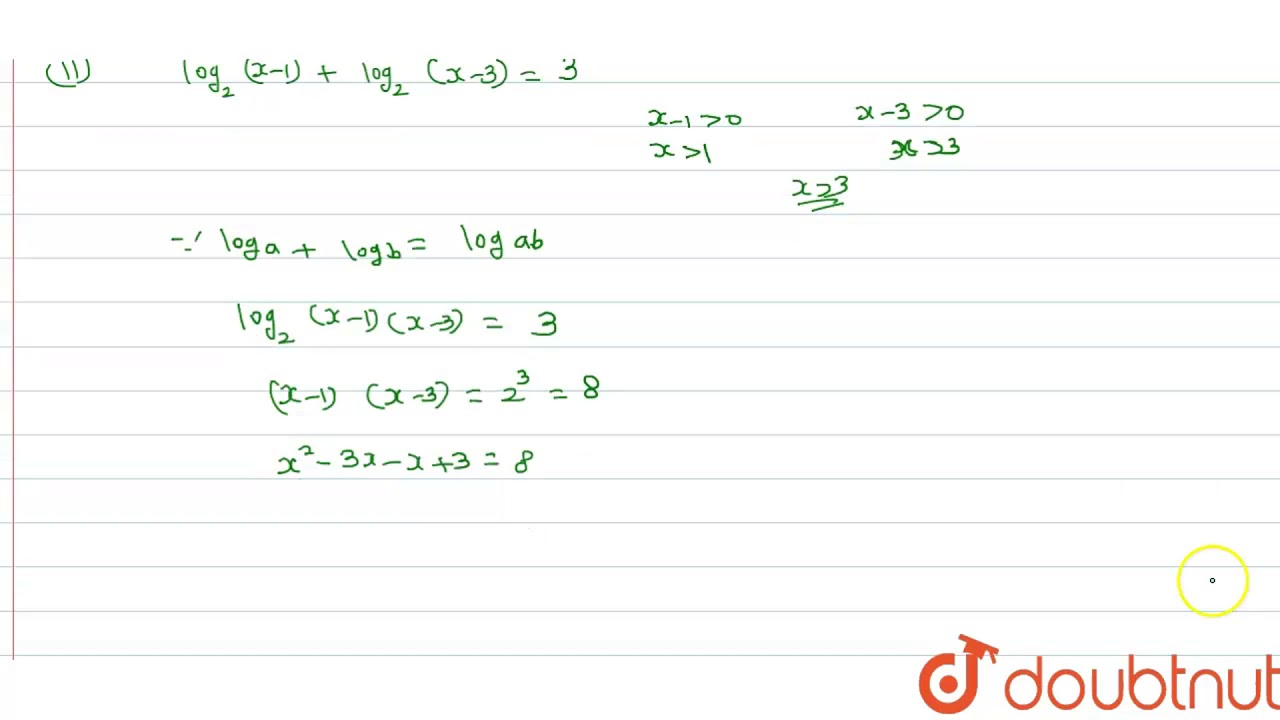 (11) log₂ (x-1) + log₂ (x-3) = 3
x-1 >0 x-3 >0
x >1 x >3
x>3
∵ log a + log b = log ab
log₂ (x-1) (x-3) = 3
(x-1) (x-3) = 2³ = 8
x² - 3x - x + 3 = 8
doubtnut